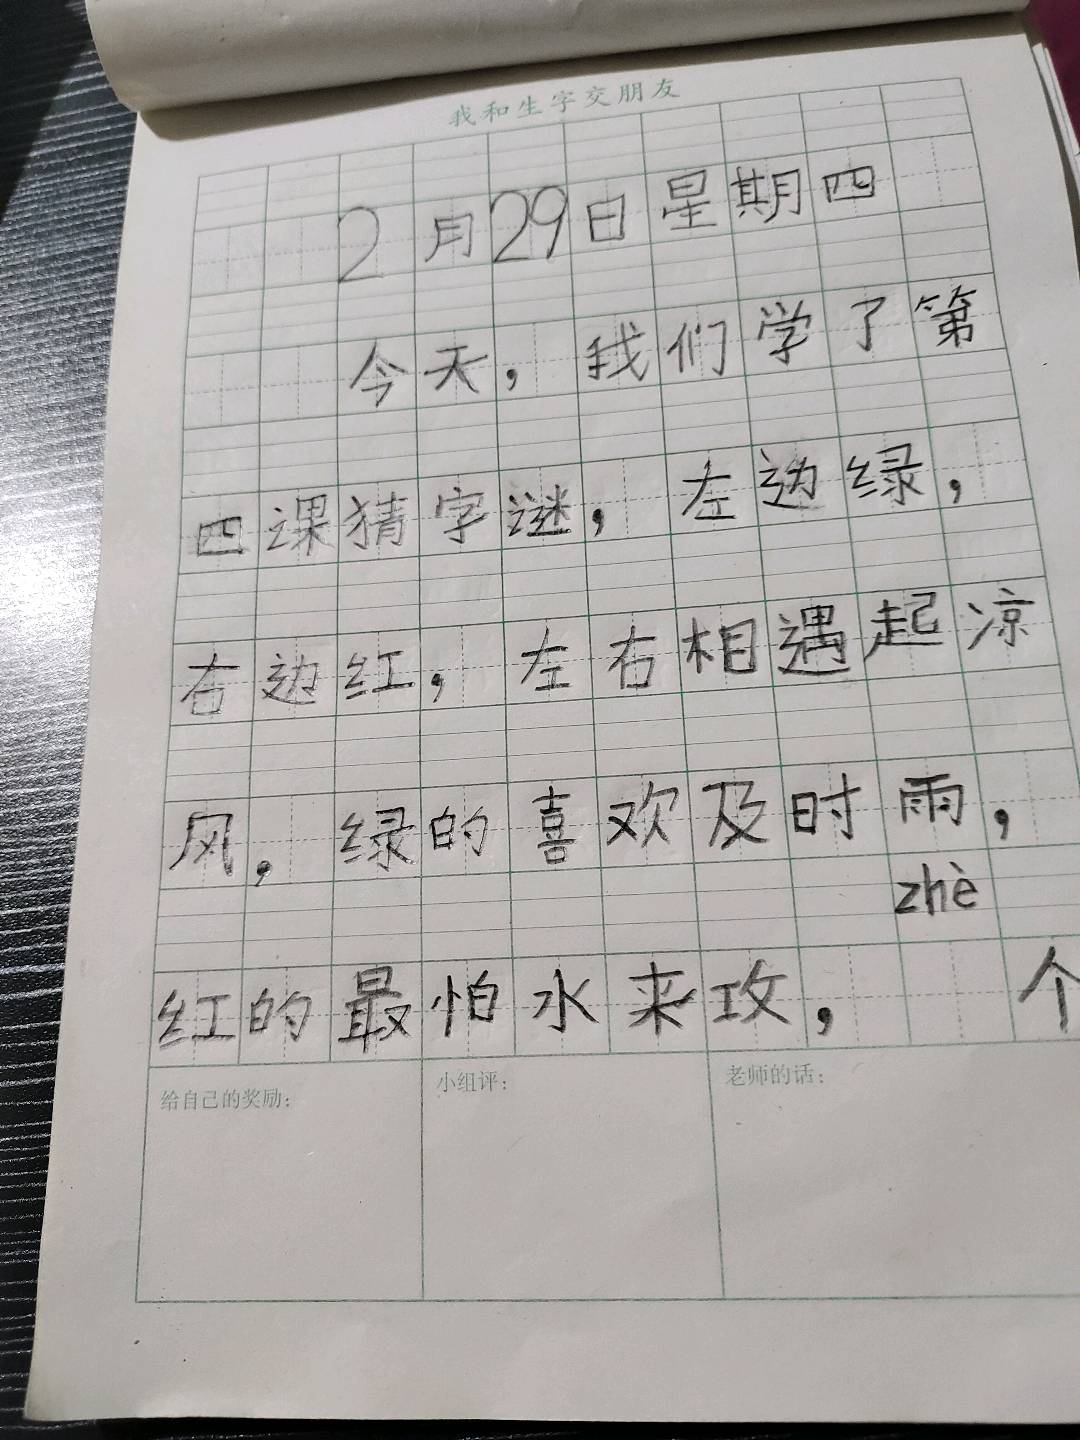 我和生字交朋友
2月29日星期四
今天，我们学了第
四课猜字谜，左边绿，
右边红，左右相遇起凉
风。绿的喜欢及时雨，
zhè
红的最怕水来攻， 个
给自己的奖励：
小组评：
老师的话：